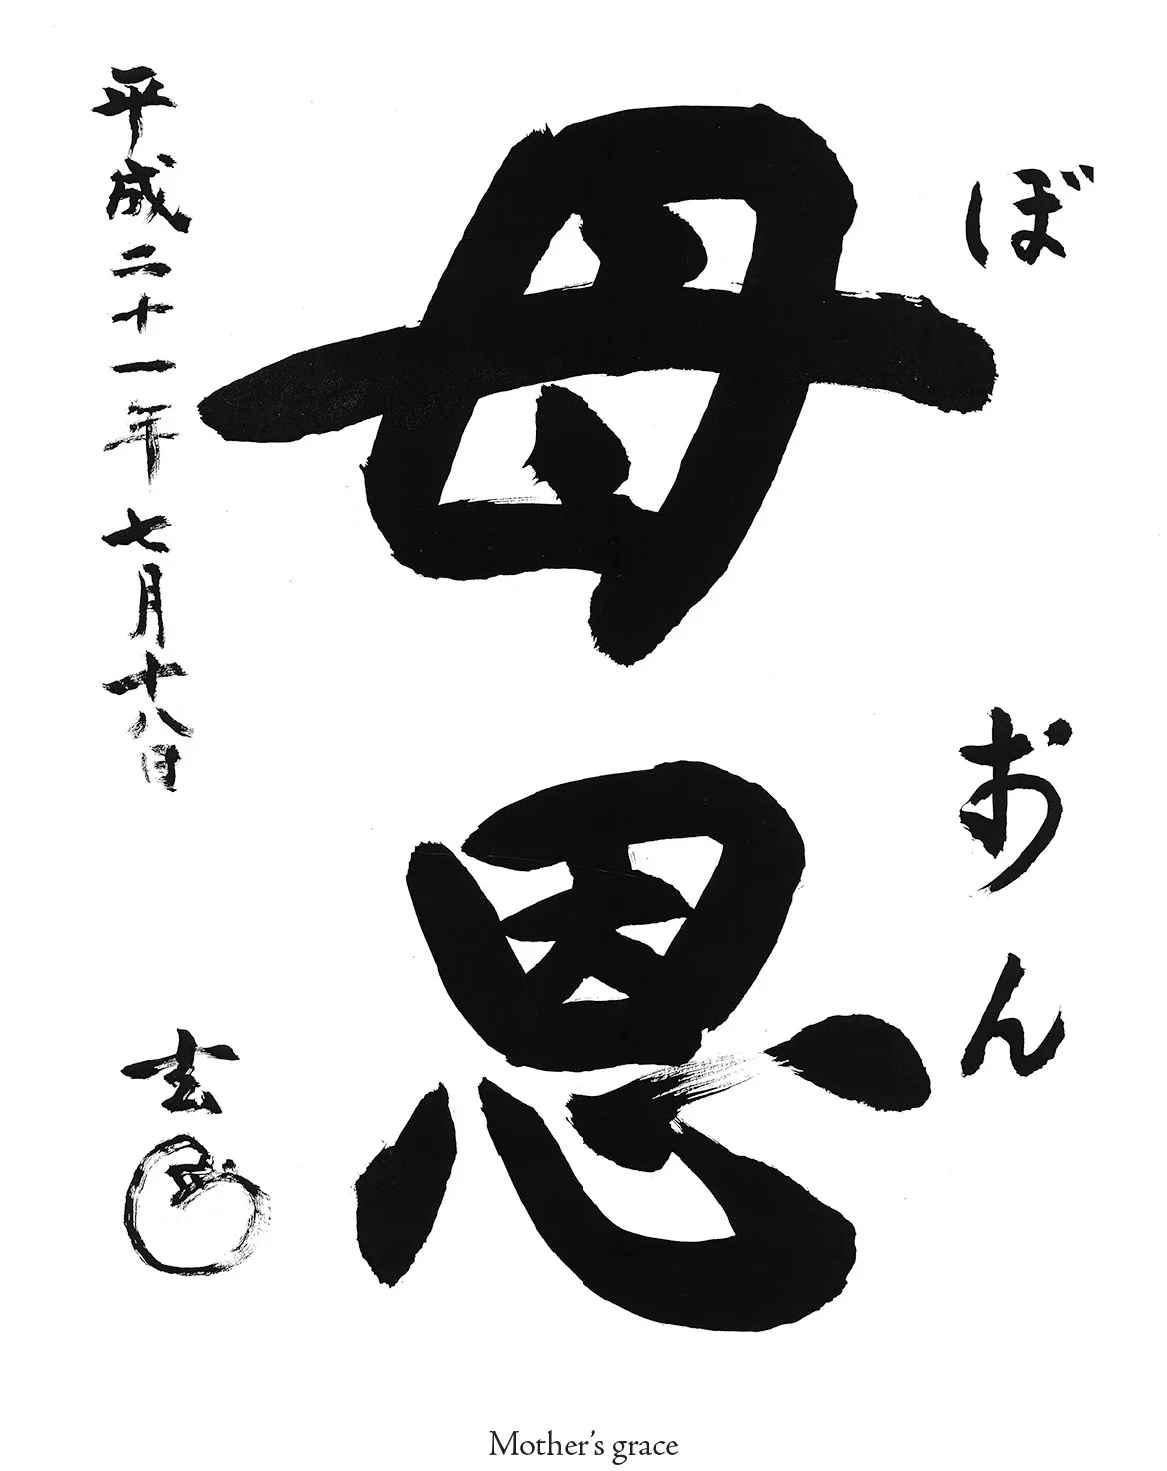 ぼおん
母恩
平成二十一年七月十八日
玄
Mother's grace